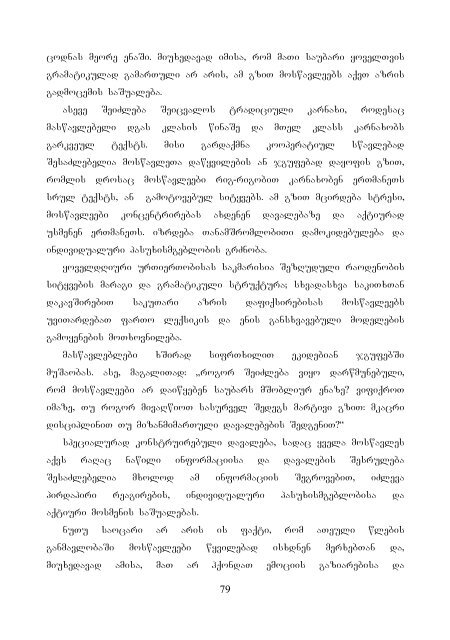 ცოდნას მეორე ენაში. მიუხედავად იმისა, რომ მათი საუბარი ყოველთვის
გრამატიკულად გამართული არ არის, ამ გზით მოსწავლეებს აქვთ აზრის
გადმოცემის საშუალება.
ასევე შეიძლება შეიცვალოს ტრადიციული კარნახი, როდესაც
მასწავლებელი დგას კლასის წინაშე და მთელ კლასს კარნახობს
გარკვეულ ტექსტს. მისი გარდაქმნა კოოპერატიულ სწავლებად
შესაძლებელია მოსწავლეთა დაწყვილების ან ჯგუფებად დაყოფის გზით,
რომლის დროსაც მოსწავლეები რიგ-რიგობით კარნახობენ ერთმანეთს
სრულ ტექსტს, ან გამოტოვებულ სიტყვებს. ამ გზით მცირდება სტრესი,
მოსწავლეები კონცენტრირებას ახდენენ დავალებაზე და აქტიურად
უსმენენ ერთმანეთს. იზრდება თანამშრომლობითი დამოკიდებულება და
ინდივიდუალური პასუხისმგებლობის გრძნობა.
ყოველდღიური ურთიერთობისას საკმარისია შეზღუდული რაოდენობის
სიტყვების მარაგი და გრამატიკული სტრუქტურა; სხვადასხვა საკითხთან
დაკავშირებით საკუთარი აზრის დაფიქსირებისას მოსწავლეებს
უვითარდებათ ფართო ლექსიკის და ენის განსხვავებული მოდელების
გამოყენების მოთხოვნილება.
მასწავლებლები ხშირად სიფრთხილით ეკიდებიან ჯგუფებში
მუშაობას. ასე, მაგალითად: „როგორ შეიძლება ვიყო დარწმუნებული,
რომ მოსწავლეები არ დაიწყებენ საუბარს მშობლიურ ენაზე? ვიფიქროთ
იმაზე, თუ როგორ მივაღწიოთ სასურველ შედეგს მარტივი გზით: მკაცრი
დისციპლინით თუ მიზანმიმართული დავალებების შედგენით?“
სპეციალურად კონსტრუირებული დავალება, სადაც ყველა მოსწავლეს
აქვს რაღაც ნაწილი ინფორმაციისა და დავალების შესრულება
შესაძლებელია მხოლოდ ამ ინფორმაციის შეგროვებით, იძლევა
პირდაპირი რეაგირების, ინდივიდუალური პასუხისმგებლობისა და
აქტიური მოსმენის საშუალებას.
ნუთუ საოცარი არ არის ის ფაქტი, რომ ათეული წლების
განმავლობაში მოსწავლეები წყვილებად ისხდნენ მერხებთან და,
მიუხედავად ამისა, მათ არ ჰქონდათ ემოციის გაზიარებისა და
79